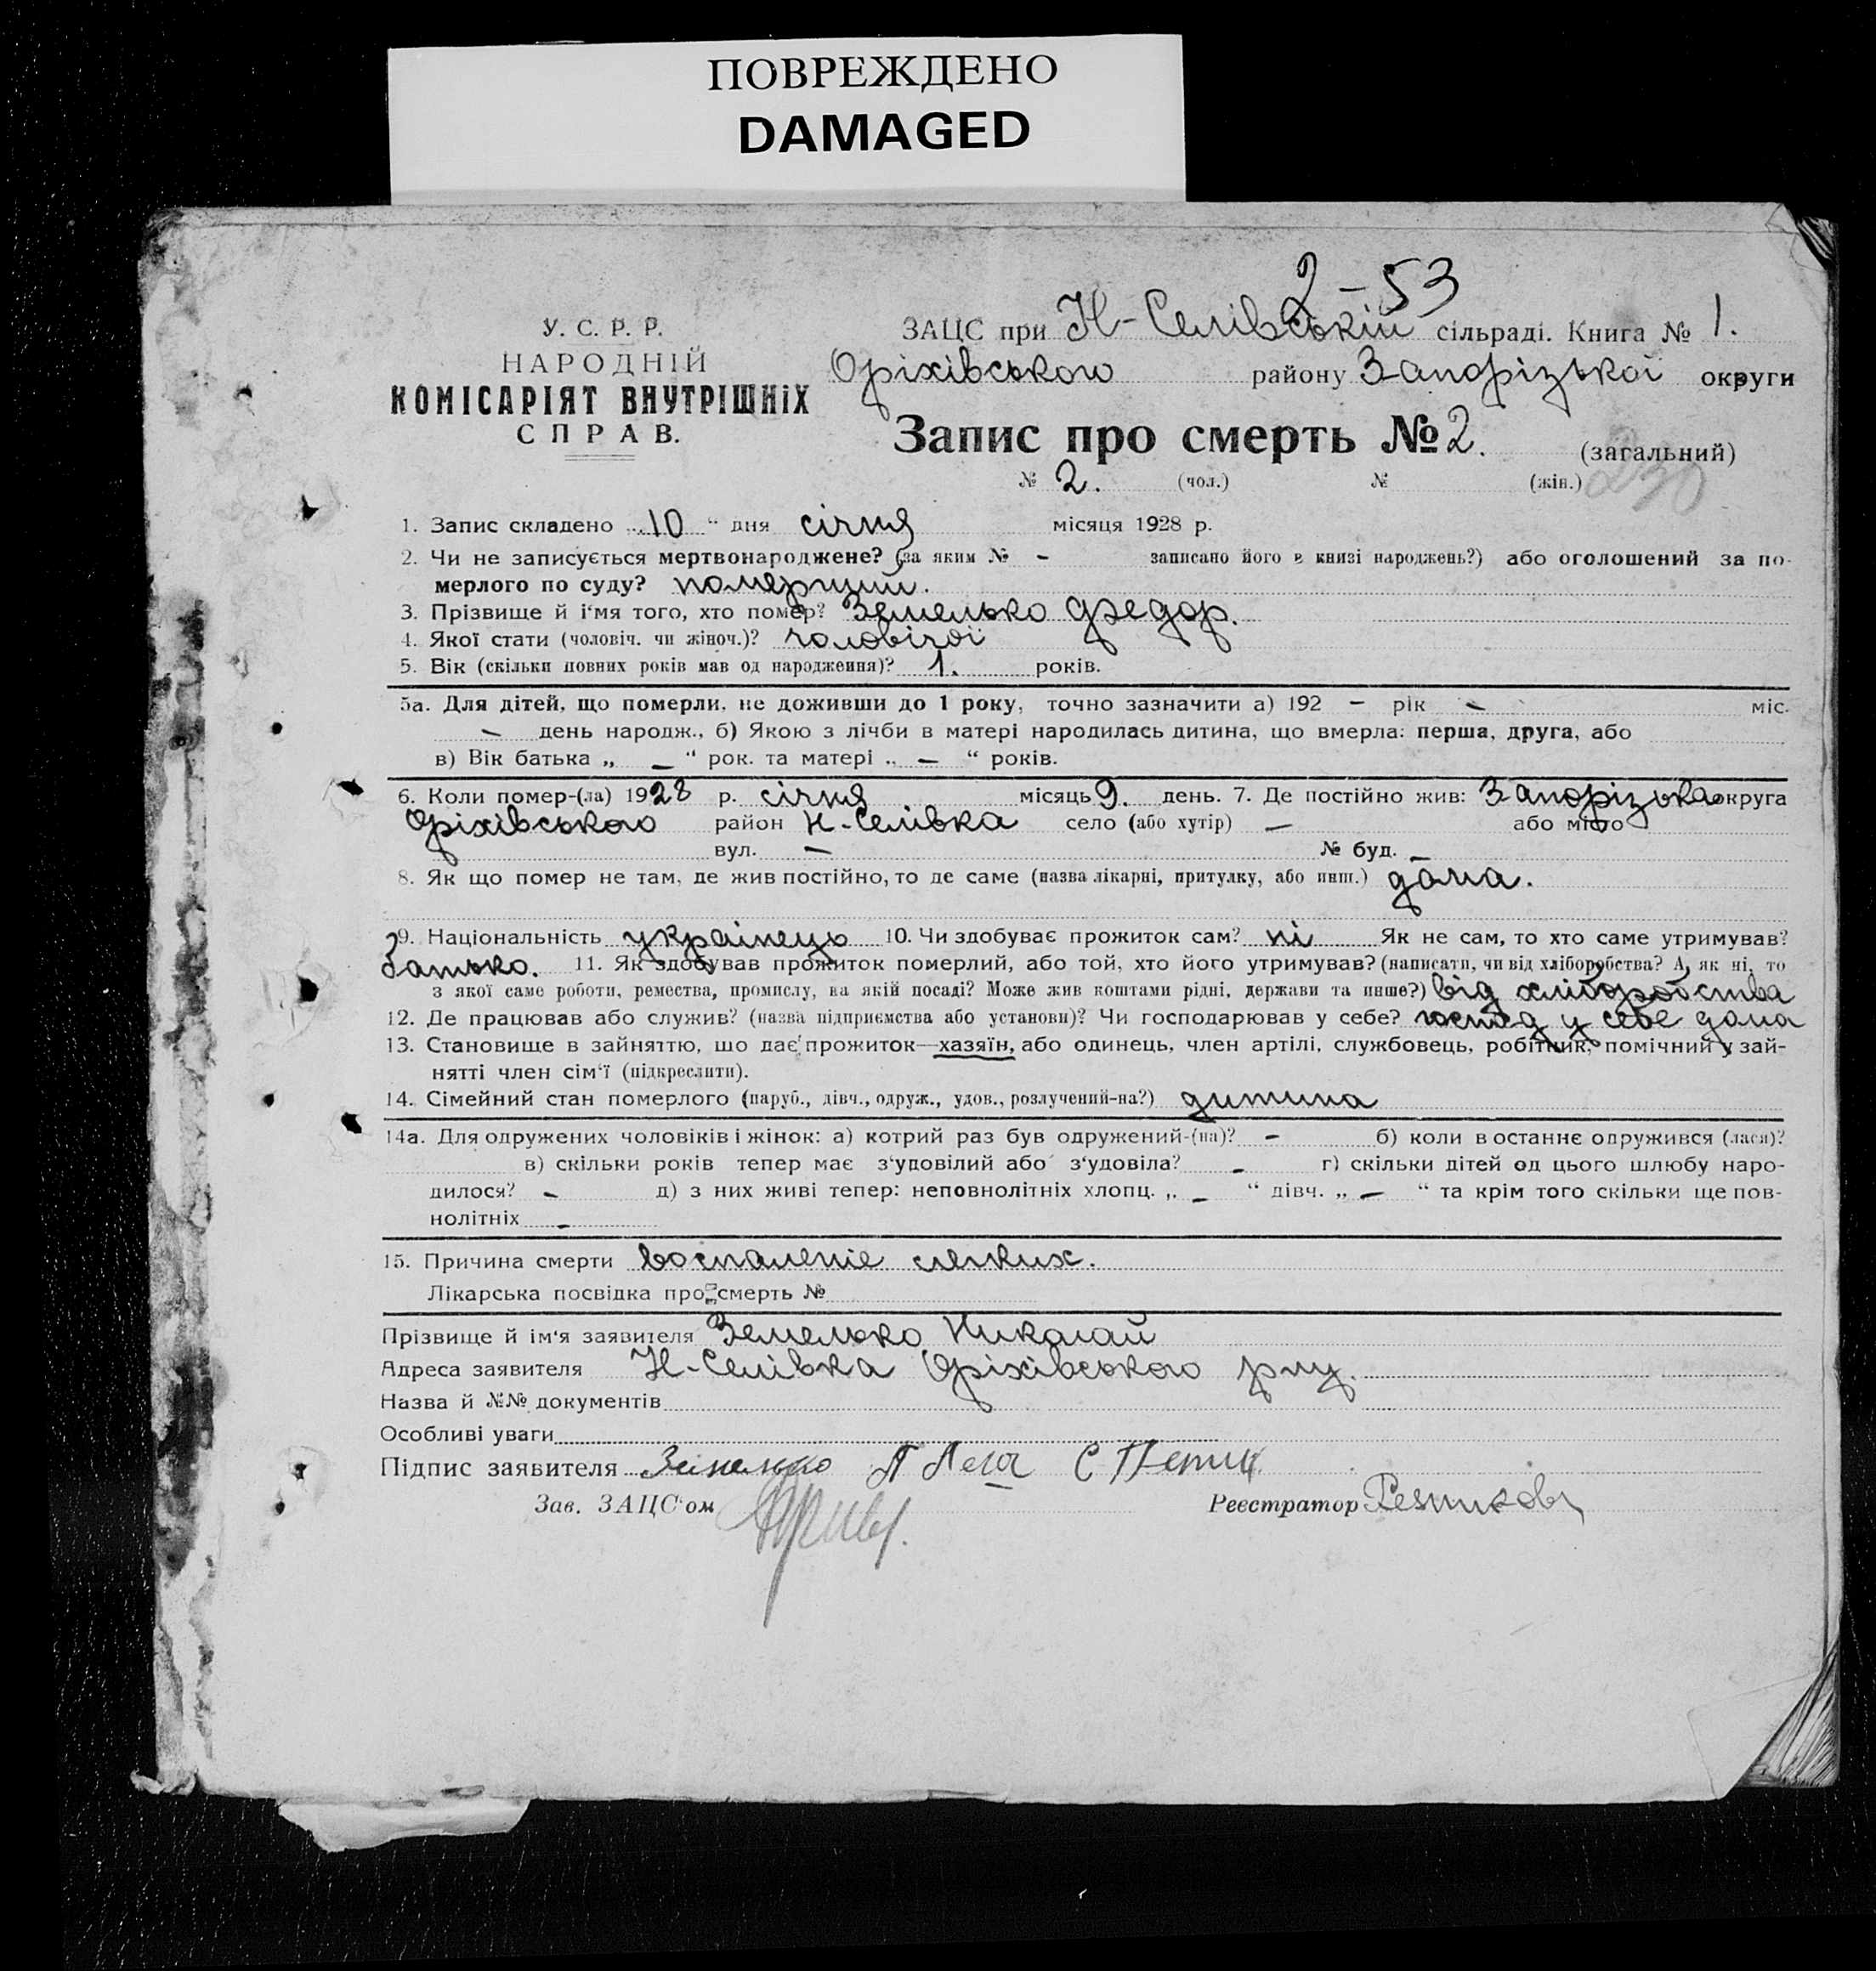 ПОВРЕЖДЕНО
DAMAGED
2-53
У. С. Р. Р.
НАРОДНІЙ
КОМІСАРІЯТ ВНУТРІШНіХ
СПРАВ.
ЗАЦС при Н-Селівській сільраді. Книга № 1.
Оріхівського району Запорізької округи
Запис про смерть № 2. (загальний)
№ 2. (чол.) № (жін.) 230
1. Запис складено „10“ дня січня місяця 1928 р.
2. Чи не записується мертвонароджене? (за яким № - записано його в книзі народжень?) або оголошений за по-
мерлого по суду? померший.
3. Прізвище й і'мя того, хто помер? Земелько Федор.
4. Якої стати (чоловіч. чи жіноч.)? чоловічої
5. Вік (скільки повних років мав од народження)? 1. років.
5а. Для дітей, що померли, не доживши до 1 року, точно зазначити а) 192 - рік - міс.
- день народж., б) Якою з лічби в матері народилась дитина, що вмерла: перша, друга, або
в) Вік батька „ - “ рок. та матері „ - “ років.
6. Коли помер-(ла) 1928 р. січня місяць 9. день. 7. Де постійно жив: Запорізька округа
Оріхівського район Н-Селівка село (або хутір) - або місто
вул. - № буд. -
8. Як що помер не там, де жив постійно, то де саме (назва лікарні, притулку, або инш.) дома.
9. Національність українець 10. Чи здобуває прожиток сам? ні Як не сам, то хто саме утримував?
батько. 11. Як здобував прожиток померлий, або той, хто його утримував? (написати, чи від хліборобства? А, як ні, то
з якої саме роботи, ремества, промислу, на якій посаді? Може жив коштами рідні, держави та инше?) від хліборобства
12. Де працював або служив? (назва підприємства або установи)? Чи господарював у себе? господ у себе дома
13. Становище в зайняттю, що дає прожиток—хазяїн, або одинець, член артілі, службовець, робітник, помічний у зай-
нятті член сім'ї (підкреслити).
14. Сімейний стан померлого (паруб., дівч., одруж., удов., розлучений-на?) дитина
14а. Для одружених чоловіків і жінок: а) котрий раз був одружений-(на)? - б) коли в останнє одружився (лася)?
в) скільки років тепер має з'удовілий або з'удовіла? - г) скільки дітей од цього шлюбу наро-
дилося? - д) з них живі тепер: неповнолітніх хлопц. „ - “ дівч. „ - “ та крім того скільки ще пов-
нолітніх -
15. Причина смерти воспаленіе легких.
Лікарська посвідка про смерть №
Прізвище й ім'я заявителя Земелько Николай
Адреса заявителя Н-Селівка Оріхівського р-ну.
Назва й №№ документів
Особливі уваги
Підпис заявителя Земелько
Зав. ЗАЦС'ом
Реєстратор